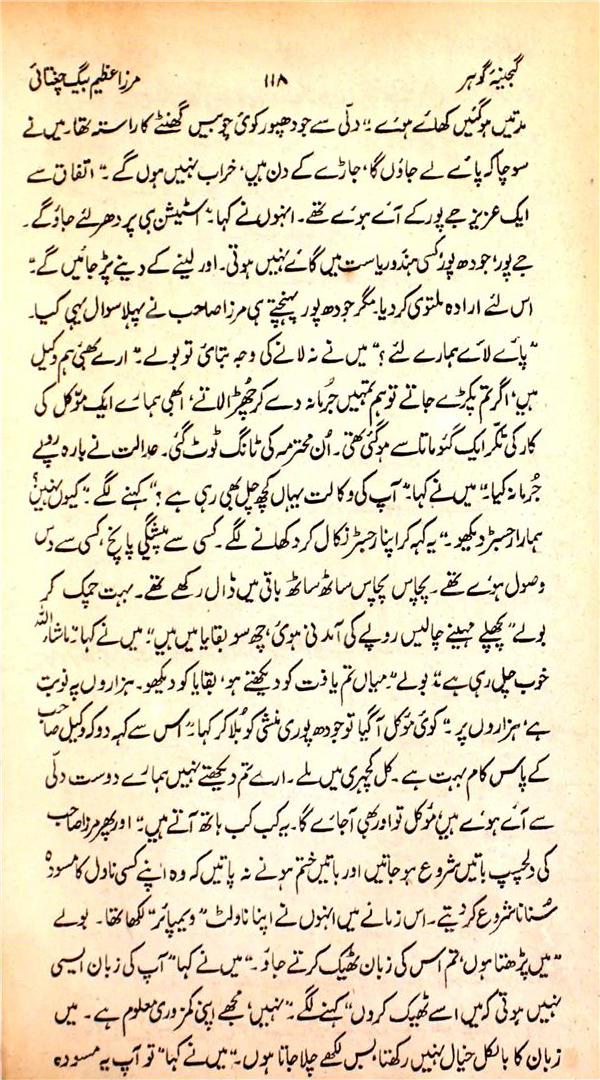 گنجینۂ گوہر ۱۱۸ مرزا عظیم بیگ چغتائی
مدتیں ہوگئیں کھائے ہوئے۔" دلّی سے جودھپور کوئی چوبیس گھنٹے کا راستہ تھا۔ میں نے
سوچا کہ پائے لے جاؤں گا، جاڑے کے دن ہیں، خراب نہیں ہوں گے۔" اتفاق سے
ایک عزیز جے پور کے آئے ہوئے تھے۔ انہوں نے کہا۔ "اسٹیشن ہی پر دھر لئے جاؤ گے۔
جے پور، جودھ پور، کسی ہندو ریاست میں گائے نہیں ہوتی۔ اور لینے کے دینے پڑ جائیں گے۔"
اس لئے ارادہ ملتوی کر دیا۔ مگر جودھ پور پہنچتے ہی مرزا صاحب نے پہلا سوال یہی کیا۔
"پائے لائے ہمارے لئے؟" میں نے نہ لانے کی وجہ بتائی تو بولے۔ "ارے بھئی ہم وکیل
ہیں، اگر تم پکڑے جاتے تو ہم تمہیں جُرمانہ دے کر چُھڑا لاتے، ابھی ہمارے ایک موّکل کی
کار کی ٹکّر ایک گئو ماتا سے ہو گئی تھی۔ اُن محترمہ کی ٹانگ ٹوٹ گئی۔ عدالت نے بارہ روپے
جُرمانہ کیا۔" میں نے کہا۔ "آپ کی وکالت یہاں کچھ چل بھی رہی ہے؟" کہنے لگے۔ "کیوں نہیں؟
ہمارا رجسٹر دیکھو۔" یہ کہہ کر اپنا رجسٹر نکال کر دکھانے لگے۔ کسی سے پیشگی پانچ، کسی سے دس
وصول ہوئے تھے۔ پچاس پچاس ساٹھ ساٹھ باقی میں ڈال رکھے تھے۔ بہت چمک کر
بولے "پچھلے مہینے چالیس روپے کی آمدنی ہوئی، چھ سو بقایا میں ہیں"۔ میں نے کہا۔ "ماشاءاللہ
خوب چل رہی ہے"۔ بولے "میاں تم یافت کو دیکھتے ہو، بقایا کو دیکھو۔ ہزاروں پہ نوبت
ہے، ہزاروں پر۔" کوئی موّکل آ گیا تو جودھ پوری منشی کو بُلا کر کہا۔ "اس سے کہہ دو کہ وکیل صاحب
کے پاس کام بہت ہے۔ کل کچہری میں ملے۔ ارے تم دیکھتے نہیں ہمارے دوست دلّی
سے آئے ہوئے ہیں، موّکل تو اور بھی آ جائے گا۔ یہ کب کب ہاتھ آتے ہیں۔" اور پھر مرزا صاحب
کی دلچسپ باتیں شروع ہو جاتیں اور باتیں ختم ہونے نہ پاتیں کہ وہ اپنے کسی ناول کا مسودہ
سُنانا شروع کر دیتے۔ اس زمانے میں انہوں نے اپنا ناولٹ "ویمپائر" لکھا تھا۔ بولے
"میں پڑھتا ہوں، تم اس کی زبان ٹھیک کرتے جاؤ۔" میں نے کہا "آپ کی زبان ایسی
نہیں ہوتی کہ میں اسے ٹھیک کروں" کہنے لگے۔ "نہیں، مجھے اپنی کمزوری معلوم ہے۔ میں
زبان کا بالکل خیال نہیں رکھتا، بس لکھے چلا جاتا ہوں۔" میں نے کہا "تو آپ یہ مسودہ